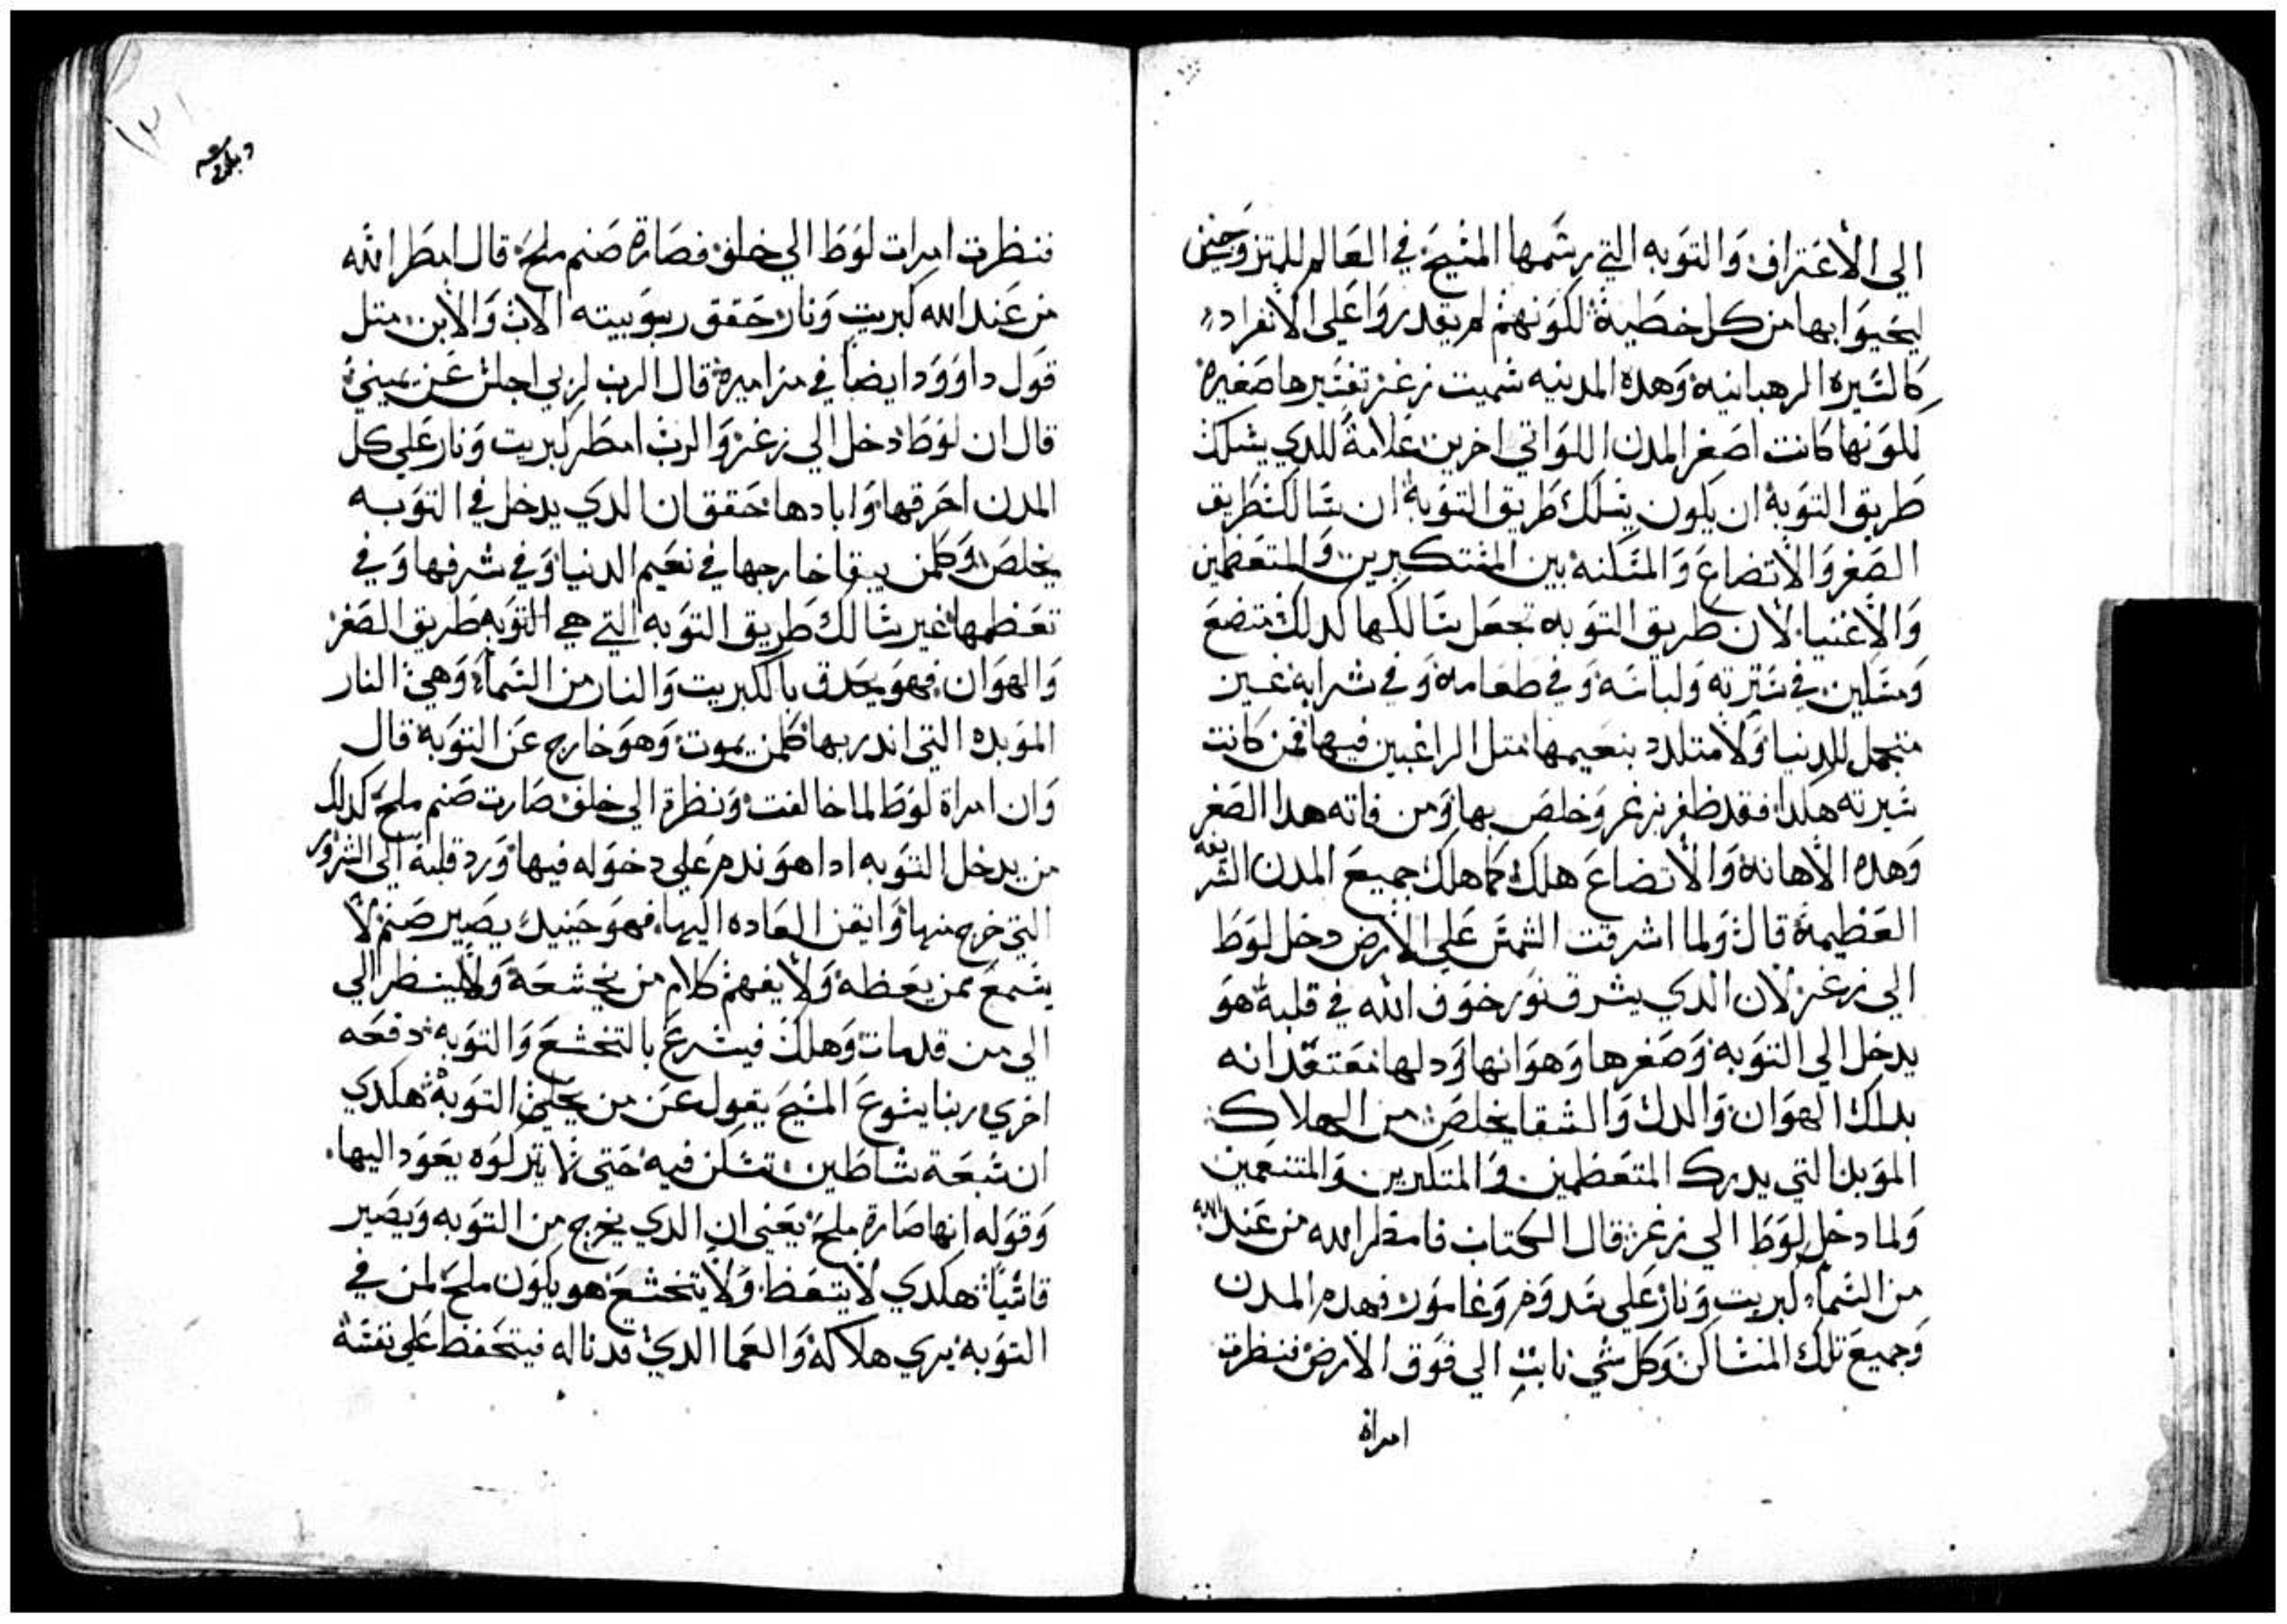 الي الأعتراف والتوبه التي رسمها المسيح في العالم للمتزوجين
ليحيوا بها من كل خطية لكونهم لم يقدروا علي الأنفراد
كالسيره الرهبانيه وهده المدينه سميت زغر تفسيرها صغيره
لكونها كانت اصغر المدن اللواتي اخرين علامة للدي يسلك
طريق التوبة ان يكون يسلك طريق التوبة ان سالك طريق
الصغر والأتضاع والمسكنه بين المستكبرين والمتعظمين
والأغنيا لأن طريق التوبه تجعل سالكها كدلك متضع
ومسكين في سيرته ولباسه وفي طعامه وفي شرابه غير
متجمل للدنيا ولا متلدد بنعيمها متل الراغبين فيها فمن كانت
سيرته هكدا فقد ظفر بزغر وخلص بها ومن فاته هدا الصغر
وهده الأهانة والأتضاع هلك كما هلك جميع المدن الشريفه
العظيمة قال ولما اشرقت الشمس علي الأرض دخل لوط
الي زغر لأن الدي يشرق نور خوف الله في قلبه هو
يدخل الي التوبه وصغرها وهوانها ودلها معتقد انه
بدلك الهوان والدل والشقا يخلص من الهلاك
الموبد التي يدرك المتعظمين والمتكبرين والمتنعمين
ولما دخل لوط الي زغر قال الكتاب فامطر الله من عند الله
من السماء كبريت ونار علي سدوم وغامور فهدم المدن
وجميع تلك المساكن وكل شي نابت الي فوق الأرض فنظرت
امراة
فنظرت امرات لوط الي خلف فصارة صنم ملح قال امطر الله
من عند الله كبريت ونار حقق ربوبيته الاب والأبن متل
قول داوود ايضا في مزاميره قال الرب لربي اجلس عن يميني
قال ان لوط دخل الي زغر والرب امطر كبريت ونار علي كل
المدن احرقها وابادها حقق ان الدي يدخل في التوبه
يخلص وكلمن يبقا خارجها في نعيم الدنيا وفي شرفها وفي
تعظمها غير سالك طريق التوبه التي هي التوبه طريق الصغر
والهوان فهو يحدق بالكبريت والنار من السماء وهي النار
الموبده التي اندر بها كلمن يموت وهو خارج عن التوبة قال
وان امراة لوط لما خالفت ونظرة الي خلف صارت صنم ملح كدلك
من يدخل التوبه ادا هو ندم علي دخوله فيها ورد قلبه الي الشرور
التي خرج منها وايقن العاده اليها فهو حينيد يصير صنم لا
يسمع ممن يعظه ولا يفهم كلام من يخشعه ولا ينظر الي
الي من قد مات وهلك فيسرع بالتخشع والتوبة دفعه
اخري ربنا يسوع المسيح يقول عن من يخلي التوبة هكدي
ان سبعة شاطين تسكن فيه حتي لا يتركوه يعود اليها
وقوله انها صارة ملح يعني ان الدي يخرج من التوبه ويصير
قاسيا هكدي لا يتعظ ولا يتخشع هو يكون ملح لمن في
التوبه يري هلاكه والعما الدي قد ناله فيتحفظ علي نفسه